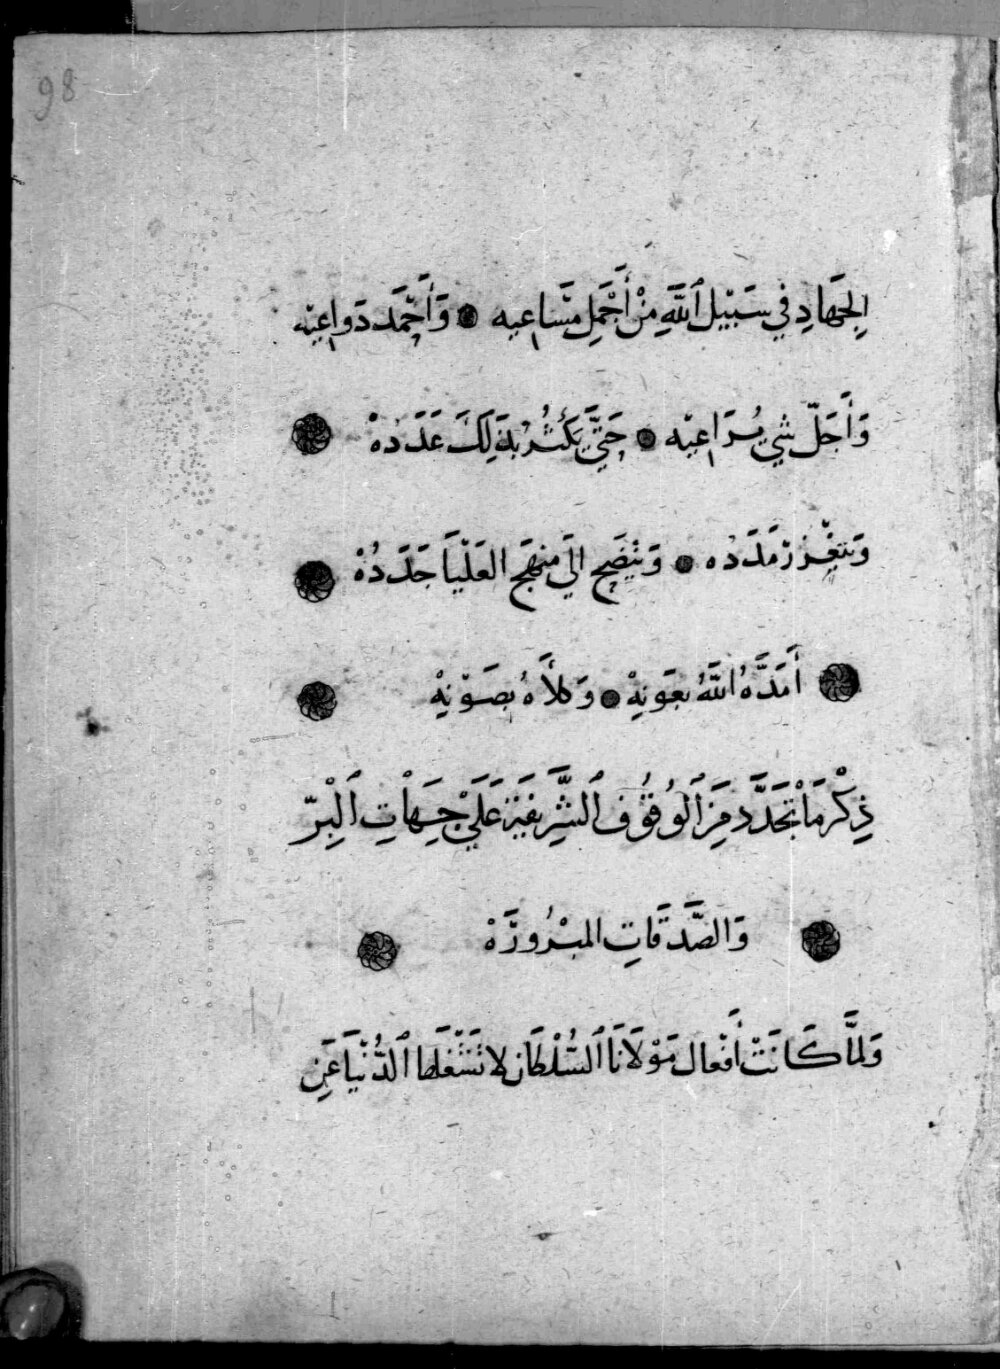 98
الجِهَادِ فِي سَبِيْلِ ٱللَّهِ مِنْ أَجْمَلِ مَسَاعِيهِ وَأَحْمَدَ دَوَاعِيْه
وَأَجَلّ شيٍ يُرَاعِيْه حَتَّى يَكْثُرُ بِذَلِكَ عَدَدُهْ
وَتَغْزِرْ مَدَدُه وَيَتَّضِحِ الَى مِنهَجِ العَلْيَا جَدَدُهْ
أَمَدَّهُ اللَّهُ بِعَونِهْ وَكَلأَهُ بِصَوْنِهْ
ذِكْر مَا تَجَدَّد مِنَ ٱلوُقُوف ٱلشَّرِيفَةِ عَلَى جِهَاتِ ٱلْبِرّ
وَالصَّدَقَاتِ المبْرُورَهْ
وَلمَّا كَانَتْ أَفْعَال مَوْلَانَا ٱلسُّلْطَان لا تَشْغَلهَا ٱلدُّنْيَا عَنِ